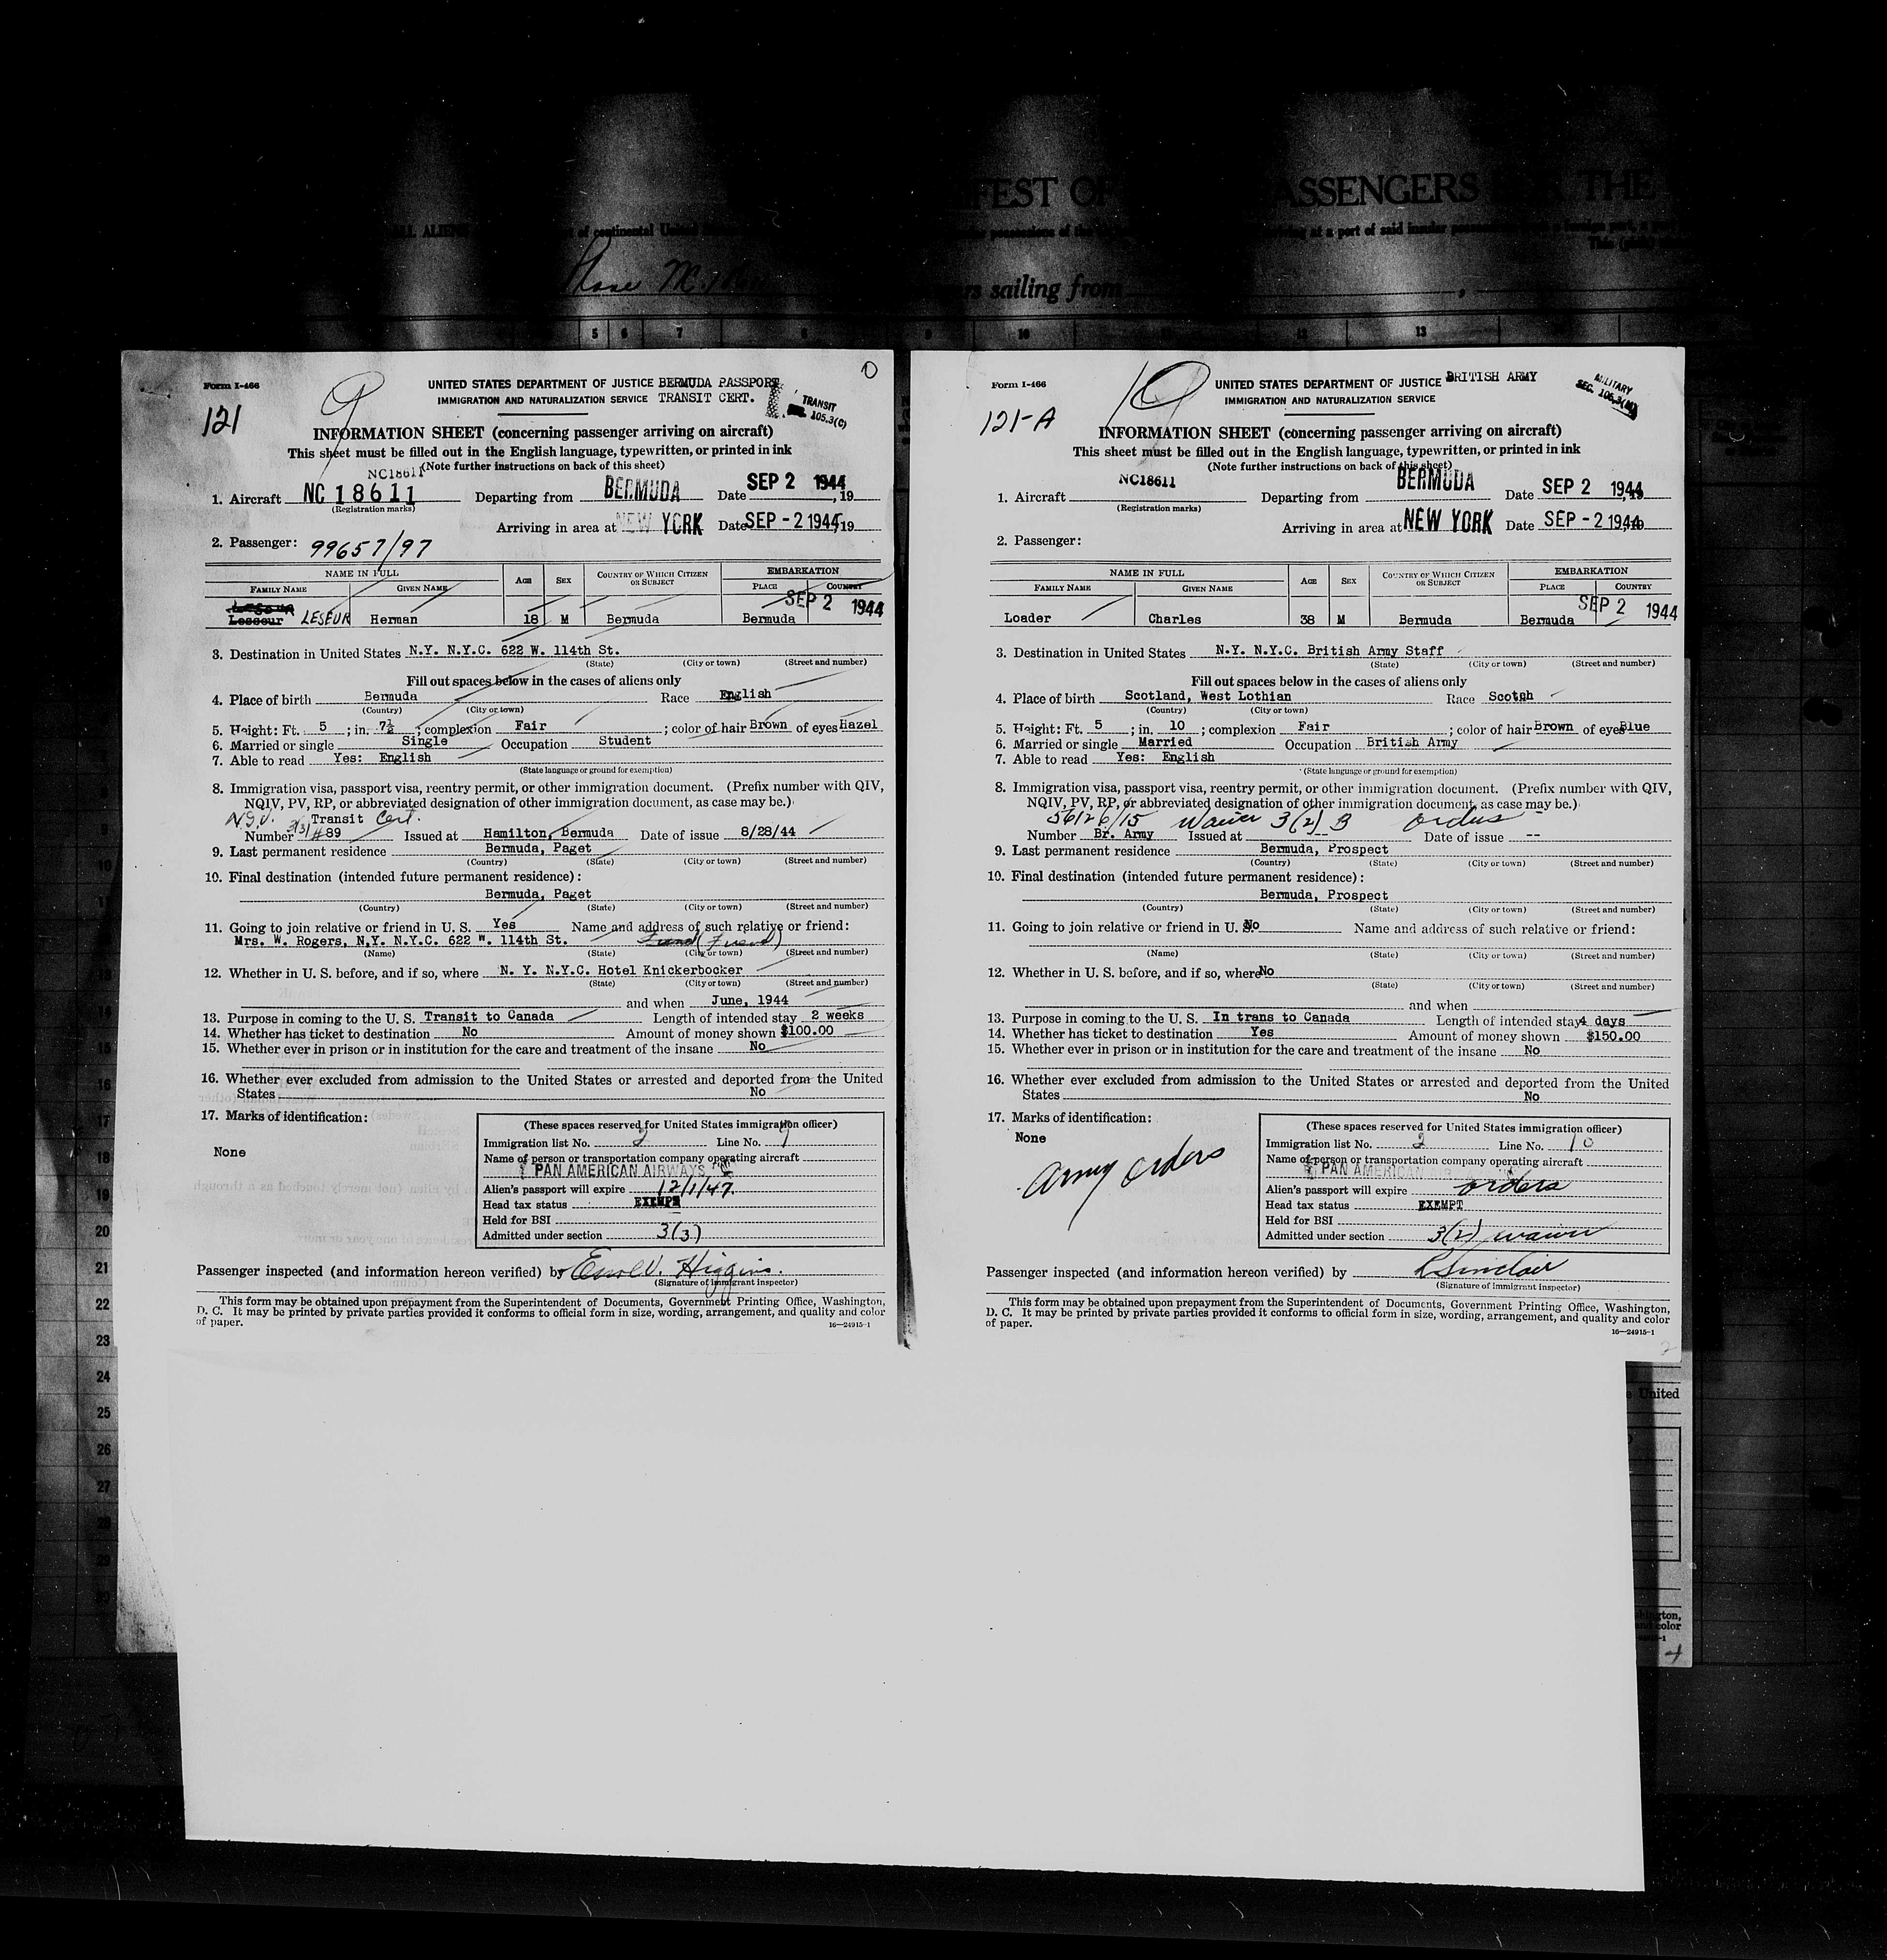 FEST OF ASSENGERS THE
ALL ALIENS of continental United
sailing from
5 6 7 8 9 10 12 13
Form I-466
121
9
UNITED STATES DEPARTMENT OF JUSTICE BERMUDA PASSPORT
IMMIGRATION AND NATURALIZATION SERVICE TRANSIT CERT.
TRANSIT
105.3(C)
INFORMATION SHEET (concerning passenger arriving on aircraft)
This sheet must be filled out in the English language, typewritten, or printed in ink
(Note further instructions on back of this sheet)
NC18611
1. Aircraft NC 18611 Departing from BERMUDA Date SEP 2 1944, 19
(Registration marks)
Arriving in area at NEW YORK Date SEP - 2 1944, 19
2. Passenger: 99657/97
NAME IN FULL AGE SEX COUNTRY OF WHICH CITIZEN OR SUBJECT EMBARKATION
FAMILY NAME GIVEN NAME PLACE COUNTRY
SEP 2 1944
Lesseur LESEUR Herman 18 M Bermuda Bermuda
3. Destination in United States N.Y. N.Y.C. 622 W. 114th St.
(State) (City or town) (Street and number)
Fill out spaces below in the cases of aliens only
4. Place of birth Bermuda Race English
(Country) (City or town)
5. Height: Ft. 5 ; in. 7½ ; complexion Fair ; color of hair Brown of eyes Hazel
6. Married or single Single Occupation Student
7. Able to read Yes: English
(State language or ground for exemption)
8. Immigration visa, passport visa, reentry permit, or other immigration document. (Prefix number with QIV,
NQIV, PV, RP, or abbreviated designation of other immigration document, as case may be.)
Transit Cert.
Number 3(3) #89 Issued at Hamilton, Bermuda Date of issue 8/28/44
9. Last permanent residence Bermuda, Paget
(Country) (State) (City or town) (Street and number)
10. Final destination (intended future permanent residence):
Bermuda, Paget
(Country) (State) (City or town) (Street and number)
11. Going to join relative or friend in U. S. Yes Name and address of such relative or friend:
Mrs. W. Rogers, N.Y. N.Y.C. 622 W. 114th St. (Friend)
(Name) (State) (City or town) (Street and number)
12. Whether in U. S. before, and if so, where N. Y. N.Y.C. Hotel Knickerbocker
(State) (City or town) (Street and number)
and when June, 1944
13. Purpose in coming to the U. S. Transit to Canada Length of intended stay 2 weeks
14. Whether has ticket to destination No Amount of money shown $100.00
15. Whether ever in prison or in institution for the care and treatment of the insane No
16. Whether ever excluded from admission to the United States or arrested and deported from the United
States No
17. Marks of identification:
None
(These spaces reserved for United States immigration officer)
Immigration list No. 2 Line No. 9
Name of person or transportation company operating aircraft
PAN AMERICAN AIRWAYS
Alien's passport will expire 12/1/47.
Head tax status EXEMPT
Held for BSI
Admitted under section 3(3)
Passenger inspected (and information hereon verified) by Errol V. Higgins.
(Signature of immigrant inspector)
This form may be obtained upon prepayment from the Superintendent of Documents, Government Printing Office, Washington,
D. C. It may be printed by private parties provided it conforms to official form in size, wording, arrangement, and quality and color
of paper.
16—24915-1
Form I-466
121-A
10
UNITED STATES DEPARTMENT OF JUSTICE BRITISH ARMY
IMMIGRATION AND NATURALIZATION SERVICE
MILITARY
SEC. 105.3(M)
INFORMATION SHEET (concerning passenger arriving on aircraft)
This sheet must be filled out in the English language, typewritten, or printed in ink
(Note further instructions on back of this sheet)
1. Aircraft NC18611 Departing from BERMUDA Date SEP 2 1944, 19
(Registration marks)
Arriving in area at NEW YORK Date SEP - 2 1944, 19
2. Passenger:
NAME IN FULL AGE SEX COUNTRY OF WHICH CITIZEN OR SUBJECT EMBARKATION
FAMILY NAME GIVEN NAME PLACE COUNTRY
SEP 2 1944
Loader Charles 38 M Bermuda Bermuda
3. Destination in United States N.Y. N.Y.C. British Army Staff
(State) (City or town) (Street and number)
Fill out spaces below in the cases of aliens only
4. Place of birth Scotland, West Lothian Race Scotch
(Country) (City or town)
5. Height: Ft. 5 ; in. 10 ; complexion Fair ; color of hair Brown of eyes Blue
6. Married or single Married Occupation British Army
7. Able to read Yes: English
(State language or ground for exemption)
8. Immigration visa, passport visa, reentry permit, or other immigration document. (Prefix number with QIV,
NQIV, PV, RP, or abbreviated designation of other immigration document, as case may be.)
56126/15 Waiver 3(2) B orders
Number Br. Army Issued at -- Date of issue --
9. Last permanent residence Bermuda, Prospect
(Country) (State) (City or town) (Street and number)
10. Final destination (intended future permanent residence):
Bermuda, Prospect
(Country) (State) (City or town) (Street and number)
11. Going to join relative or friend in U. S. No Name and address of such relative or friend:
(Name) (State) (City or town) (Street and number)
12. Whether in U. S. before, and if so, where No
(State) (City or town) (Street and number)
and when
13. Purpose in coming to the U. S. In trans to Canada Length of intended stay 4 days
14. Whether has ticket to destination Yes Amount of money shown $150.00
15. Whether ever in prison or in institution for the care and treatment of the insane No
16. Whether ever excluded from admission to the United States or arrested and deported from the United
States No
17. Marks of identification:
None
Army orders
(These spaces reserved for United States immigration officer)
Immigration list No. 2 Line No. 10
Name of person or transportation company operating aircraft
PAN AMERICAN AIR
Alien's passport will expire orders
Head tax status EXEMPT
Held for BSI
Admitted under section 3(2) waiver
Passenger inspected (and information hereon verified) by R Sinclair
(Signature of immigrant inspector)
This form may be obtained upon prepayment from the Superintendent of Documents, Government Printing Office, Washington,
D. C. It may be printed by private parties provided it conforms to official form in size, wording, arrangement, and quality and color
of paper.
16—24915-1